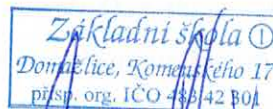 Základní škola ①
Domažlice, Komenského 17
přísp. org. IČO 483 42 301